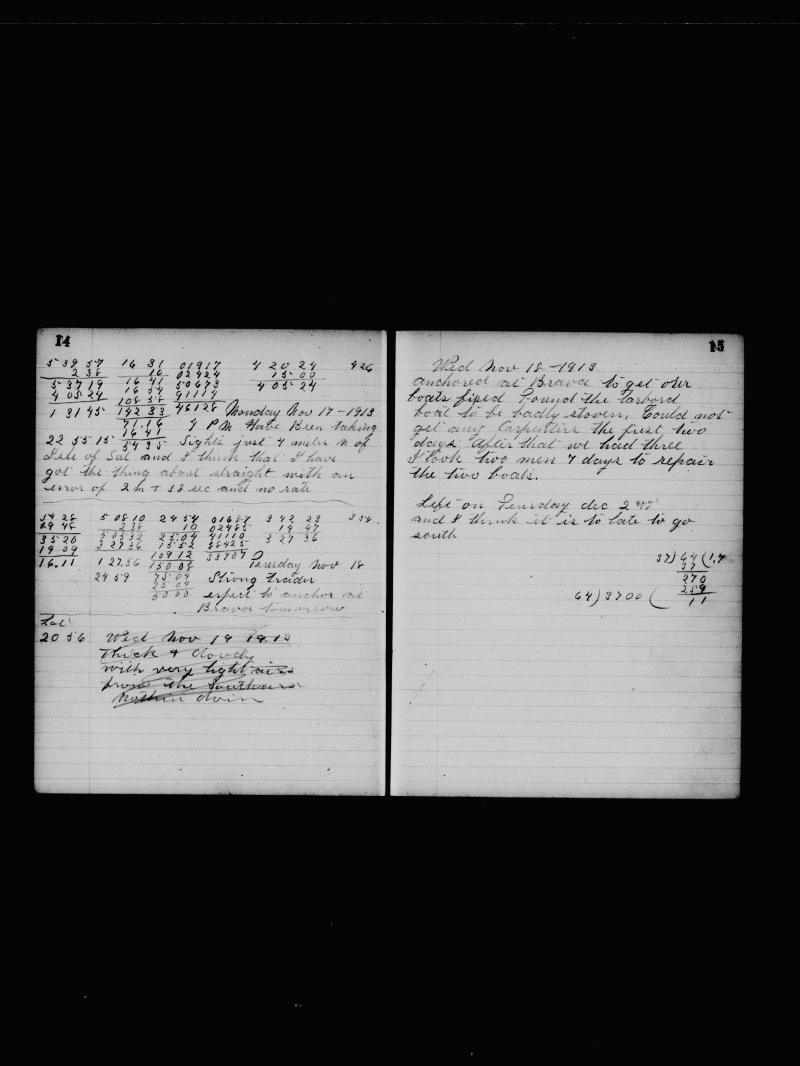 14
5 39 57 16 31 01917 4 20 24 426
2 38 10 02424 15 00
5 37 19 16 41 50673 4 05 24
4 05 24 16 54 91114
1 31 45 108 58 46128 Monday Nov 17 - 1913
142 33
71.16 4 P M Have Been taking
16 41
22 55 15 54 35 Sights just 4 miles n of
Isle of Sal and I think that I have
got the thing about straight with an
error of 2 m + 38 sec and no rate
54 28 5 08 10 24 54 01687 3 42 23 354
19 48 2 38 10 02465 14 47
35 20 5 05 32 25.04 41110 3 27 36
19 09 3 27 36 15 52 88425
16.11 1 27.56 109 12 33707 Teursday Nov 18
150 08
24 59 75.04 Strong trades
25 04
50 00 expect to anchor at
Brava tomorrow
Lat
20 56 Wed Nov 19 1913
Thick & cloudy
with very light airs
from the Southard
Nothin doin
15
Wed Nov 18 - 1913
anchored at Brava to get our
boats fixed Found the Larbord
boat to be badly stoven, Could not
get any Carpentire the first two
days After that we had three
I took two men 7 days to repair
the two boats.
Left on Teursday dec 2
and I think it is to late to go
south
37)64(1.7
37
270
259
64)3700( 11